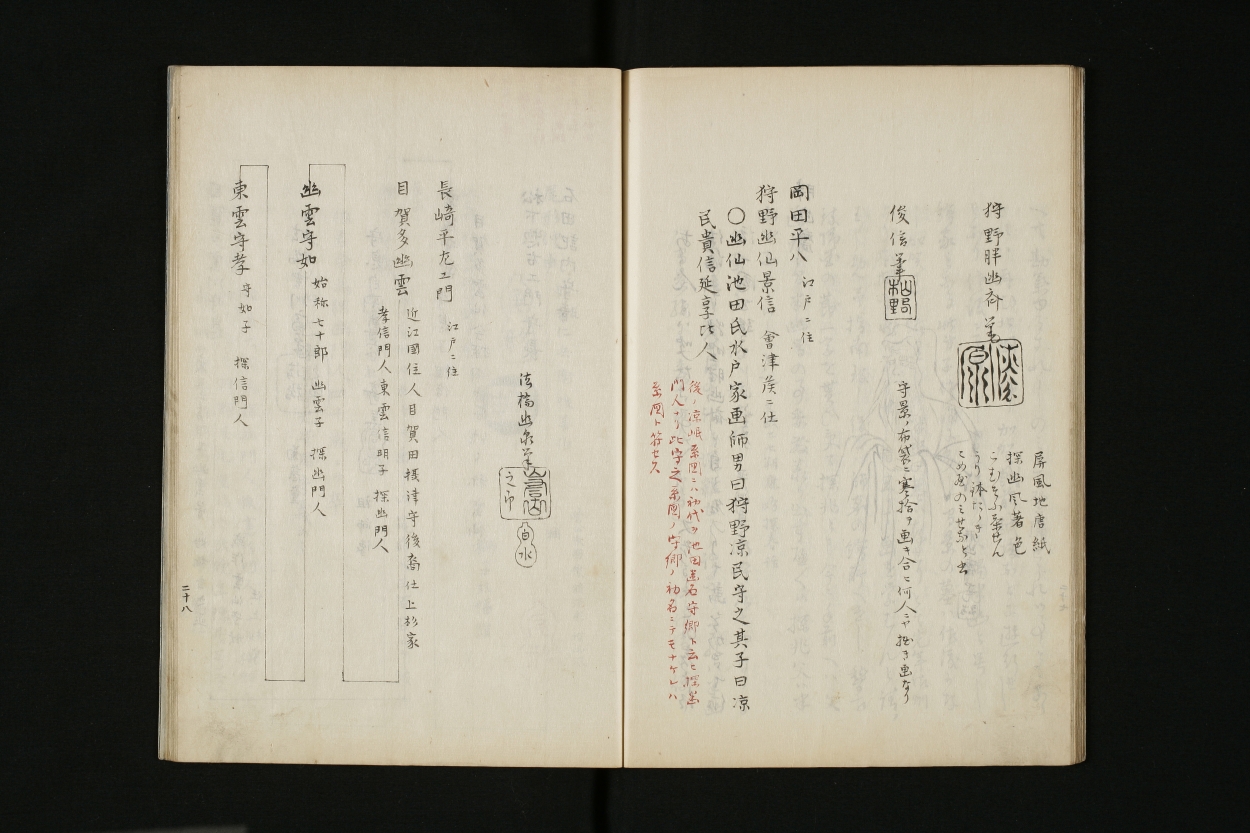 狩野胖幽斎筆
屏風地唐紙
探幽風著色
俊信筆
守景ノ布袋ニ寒拾ヲ画キ合ニ何人ニヤ拙キ画なり
岡田平八 江戸ニ住
狩野幽仙景信 會津侯ニ仕
〇幽仙池田氏水戸家画師男曰狩野凉民守之其子曰凉
民貴信延享比人
後ノ凉岷系圖ニハ初代ヲ池田幽石守卿ト云ヒ探幽
門人ナリ此守之系圖ノ守卿ノ初名ニテモナケレハ
系圖ト符セス
法橋幽泉筆
之印
白水
長崎平左エ門 江戸ニ住
目賀多幽雲 近江國住人目賀田摂津守後裔仕上杉家
孝信門人東雲信明子 探幽門人
幽雲守如 始称七十郎 幽雲子 探幽門人
東雲守孝 守如子 探信門人
二十八